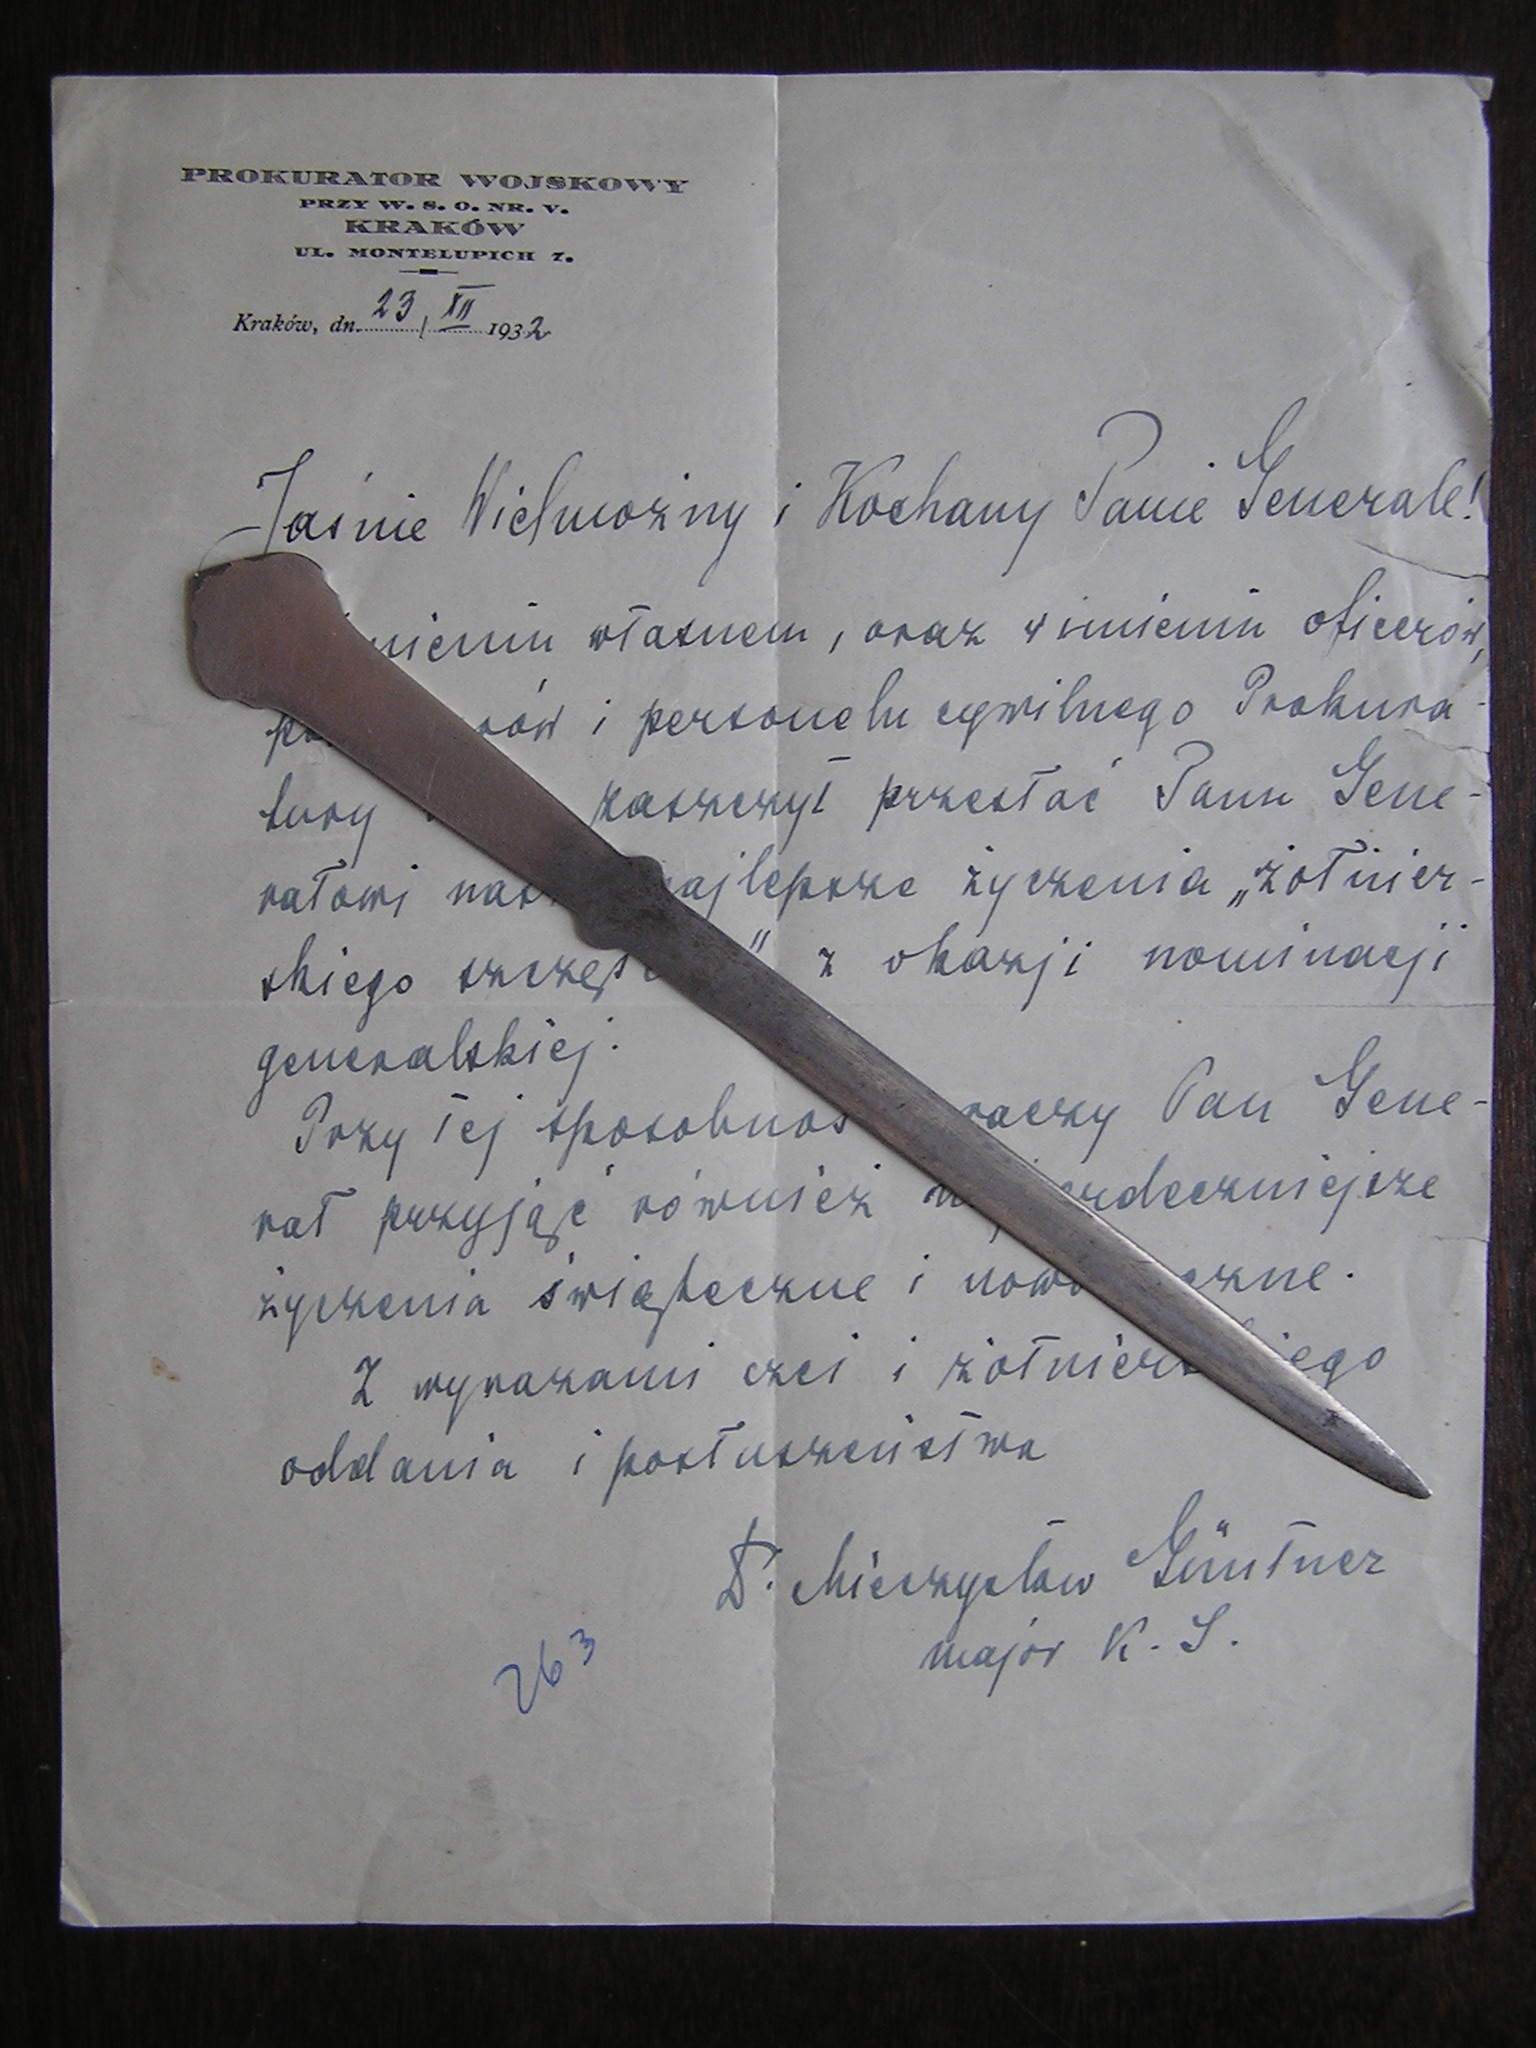 PROKURATOR WOJSKOWY
PRZY W. S. O. NR. V.
KRAKÓW
UL. MONTELUPICH 7.
Kraków, dn. 23/XII 1932
Jaśnie Wielmożny i Kochany Panie Generale!
imieniu własnem, oraz w imieniu oficerów,
i personelu cywilnego Prokura-
tury zaszczyt przesłać Panu Gene-
rałowi najlepsze życzenia „żołnier-
skiego " z okazji nominacji
generalskiej.
Przy tej raczy Pan Gene-
rał przyjąć również
życzenia świąteczne i
Z wyrazami czci i żołnierskiego
oddania i posłuszeństwa
Dr. Mieczysław Güntner
major K. S.
263